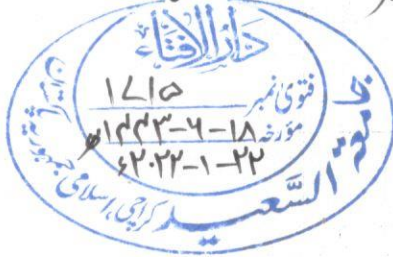 دارالافتاء
فتویٰ نمبر ۱۷۱۵
مؤرخہ ۱۸-۶-۱۴۴۳ھ
۲۲-۱-۲۰۲۲ء
جامعة السَّعید کراچی، اسلامی جمہوریہ